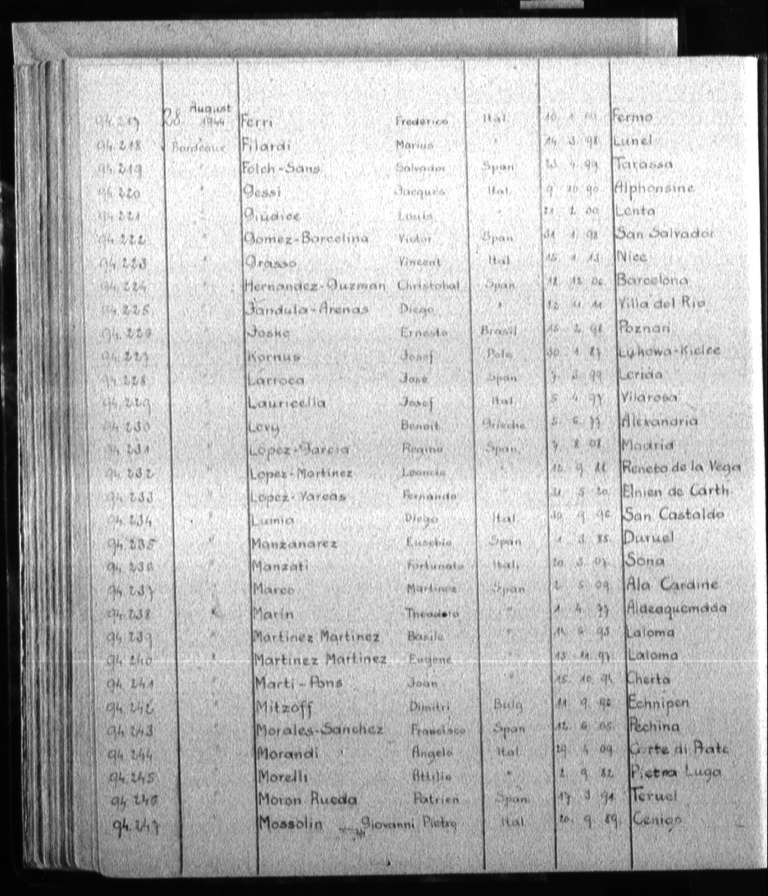 94.217 28. August 1944 Ferri Frederico Ital. Fermo
94.218 Bordeaux Filardi Marius " 14 3 98 Lunel
94.219 " Folch-Sans Salvador Span 4 99 Tarassa
94.220 " Gessi Jacques Ital. 9 10 90 Alphonsine
94.221 " Giudice Louis " 21 2 00 Lenta
94.222 " Gomez-Barcelina Victor Span 31 1 98 San Salvador
94.223 " Grasso Vincent Ital 15 1 13 Nice
94.224 " Hernandez-Guzman Christobal Span 18 12 06 Barcelona
94.225 " Jandula-Arenas Diego " 12 11 11 Villa del Rio
94.226 " Joske Ernesto Brasil 16 2 98 Poznan
94.227 " Kornus Josef Pole 30 1 87 Lykowa-Kielce
94.228 " Larroca José Span 7 3 99 Lerida
94.229 " Lauricella Josef Ital 5 4 97 Vilarosa
94.230 " Levy Benoit Grieche 5 6 77 Alexandria
94.231 " Lopez-Garcia Regino Span. 7 8 08 Madrid
94.232 " Lopez-Martinez Leoncio " 9 Reneto de la Vega
94.233 " Lopez-Vargas Fernando " 31 5 20 Elnien de Carth
94.234 " Lumia Diego Ital. 30 9 96 San Castaldo
94.235 " Manzanarez Eusebio Span 1 3 85 Duruel
94.236 " Manzati Fortunato Ital. 20 3 07 Sona
94.237 " Marco Martinez Span 2 5 09 Ala Cardine
94.238 " Marin Theodoro " 1 4 77 Aldeaquemada
94.239 " Martinez Martinez Basile " 6 93 Laloma
94.240 " Martinez Martinez Eugene " 13 11 97 Laloma
94.241 " Marti-Pons Joan " 15. 10. Cherta
94.242 " Mitzoff Dimitri Bulg 11 9 96 Echnipen
94.243 " Morales-Sanchez Francisco Span 12 6 05 Pechina
94.244 " Morandi Angelo Ital 29 4 09 Corte di Prate
94.245 " Morelli Attilio " 2 9 82 Pietra Luga
94.246 " Moron Rueda Patrien Span. 17 3 91 Teruel
94.247 " Mossolin Giovanni Pietro Ital. 20. 9. 89. Cenigo